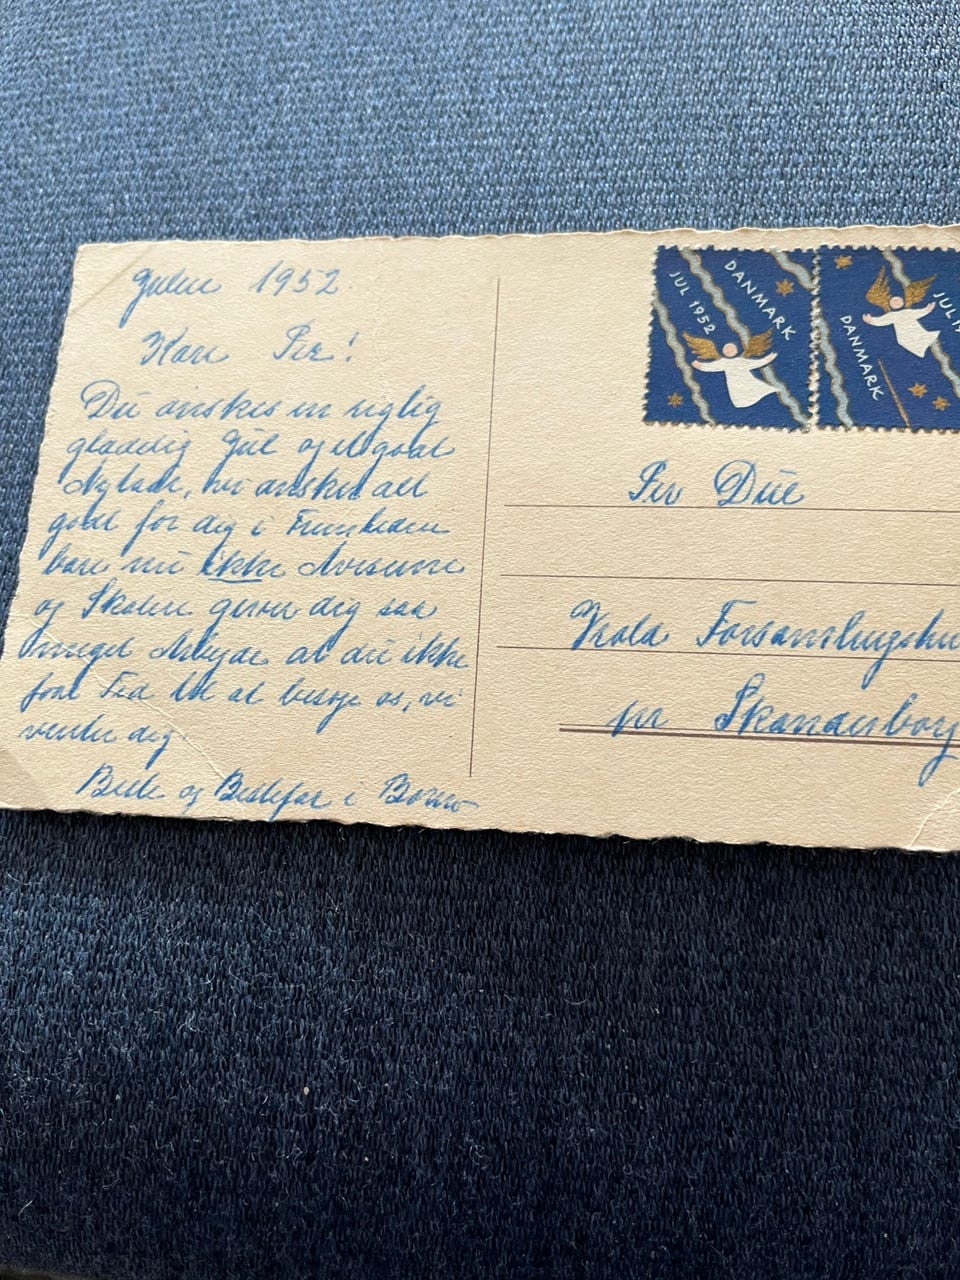 Julen 1952.
Kære Per!
Du ønskes en rigtig
glædelig Jul og et godt
Nytaar, vi ønsker alt
godt for dig i Fremtiden
bare nu ikke Aviserne
og Skolen giver dig saa
meget Arbejde at du ikke
faar Tid til at besøge os, vi
venter dig
Bedste og Bedstefar i
DANMARK
JUL 1952
DANMARK
Per Due
Forsamlingshu
pr Skanderborg